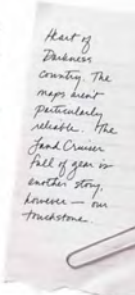 Heart of
Darkness
country. The
maps aren't
particularly
reliable. The
Land Cruiser
full of gear is
another story,
however — our
touchstone